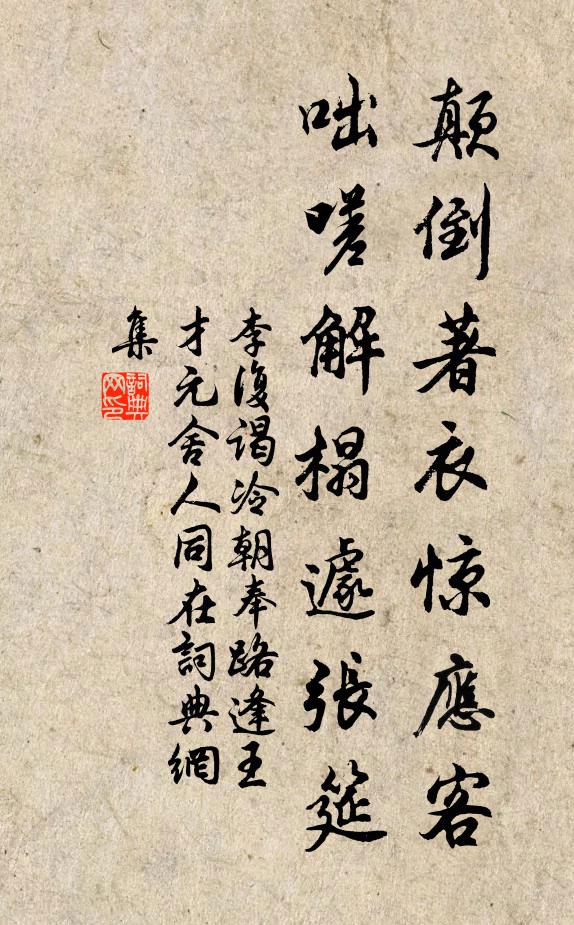 颠倒著衣惊應客
咄嗟解榻遽張筵
李復謁冷朝奉路逢王
才元舍人同在詞典網
集
詞典
网印